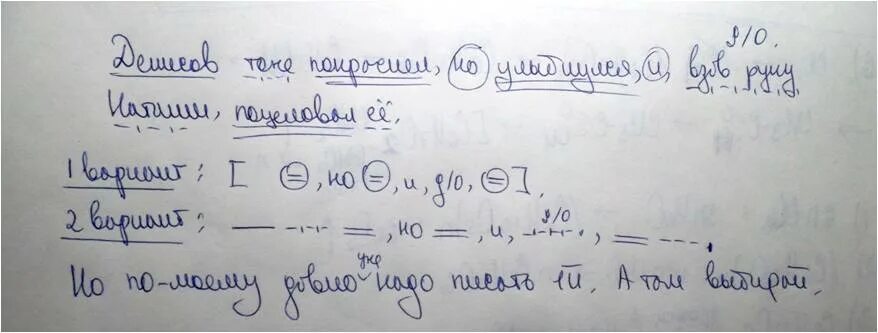 Денисов тоже покраснел, но улыбнулся, и, взяв руку д/о.
Наташи, поцеловал её.
1 вариант: [ =, но =, и, д/о, = ].
2 вариант: — -·-·- =, но =, и, д/о -·-·-, = - - -.
Но по-моему давно уже надо писать 1й. А там выбирай.